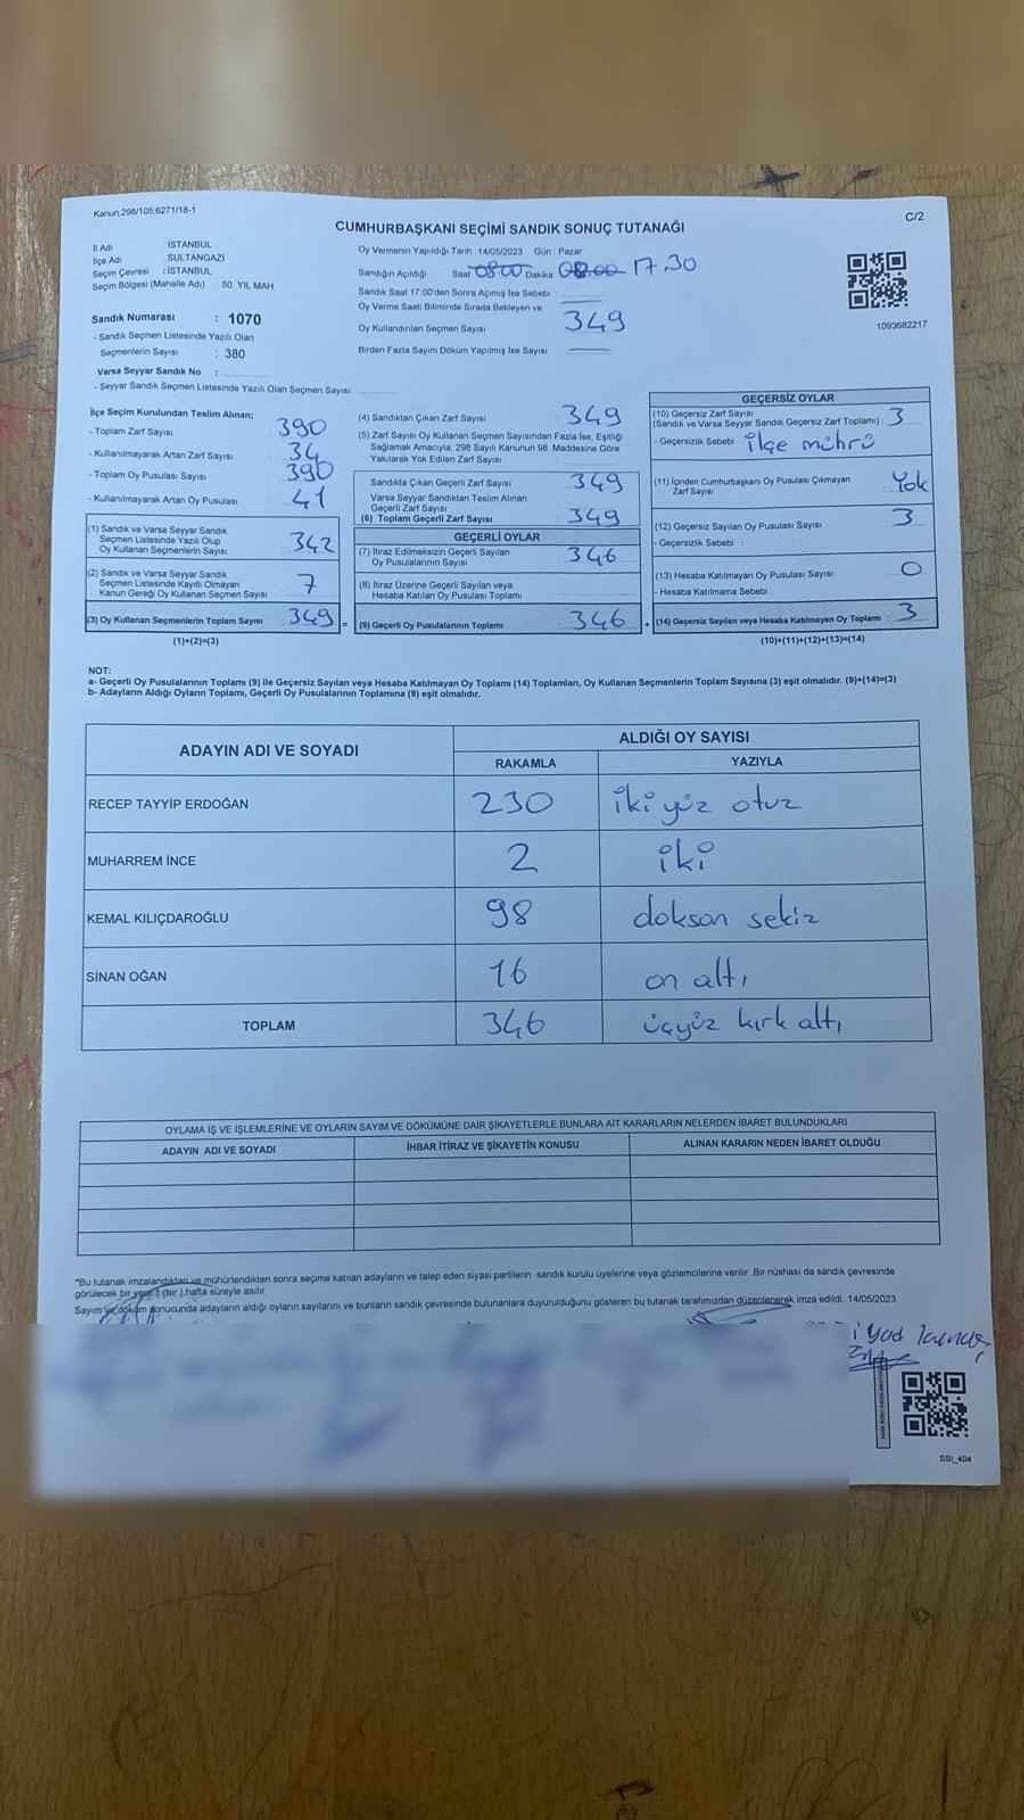 Kanun.298/105.6271/18-1
C/2
CUMHURBAŞKANI SEÇİMİ SANDIK SONUÇ TUTANAĞI
İl Adı İSTANBUL
İlçe Adı SULTANGAZİ
Seçim Çevresi : İSTANBUL
Seçim Bölgesi (Mahalle Adı) 50. YIL MAH.
Sandık Numarası : 1070
- Sandık Seçmen Listesinde Yazılı Olan
Seçmenlerin Sayısı : 380
Varsa Seyyar Sandık No :
- Seyyar Sandık Seçmen Listesinde Yazılı Olan Seçmen Sayısı
Oy Vermenin Yapıldığı Tarih : 14/05/2023 Gün : Pazar
Sandığın Açıldığı Saat 08:00 Dakika 08.00 17.30
Sandık Saat 17:00'den Sonra Açılmış İse Sebebi
Oy Verme Saati Bitiminde Sırada Bekleyen ve
Oy Kullandırılan Seçmen Sayısı 349
Birden Fazla Sayım Döküm Yapılmış İse Sayısı
1093682217
İlçe Seçim Kurulundan Teslim Alınan;
- Toplam Zarf Sayısı 390
- Kullanılmayarak Artan Zarf Sayısı 34
- Toplam Oy Pusulası Sayısı 390
- Kullanılmayarak Artan Oy Pusulası 41
(1) Sandık ve Varsa Seyyar Sandık
Seçmen Listesinde Yazılı Olup
Oy Kullanan Seçmenlerin Sayısı 342
(2) Sandık ve Varsa Seyyar Sandık
Seçmen Listesinde Kayıtlı Olmayan
Kanun Gereği Oy Kullanan Seçmen Sayısı 7
(3) Oy Kullanan Seçmenlerin Toplam Sayısı 349 =
(1)+(2)=(3)
(4) Sandıktan Çıkan Zarf Sayısı 349
(5) Zarf Sayısı Oy Kullanan Seçmen Sayısından Fazla İse, Eşitliği
Sağlamak Amacıyla, 298 Sayılı Kanunun 98. Maddesine Göre
Yakılarak Yok Edilen Zarf Sayısı
Sandıkta Çıkan Geçerli Zarf Sayısı 349
Varsa Seyyar Sandıktan Teslim Alınan
Geçerli Zarf Sayısı
(6) Toplam Geçerli Zarf Sayısı 349
GEÇERLİ OYLAR
(7) İtiraz Edilmeksizin Geçerli Sayılan
Oy Pusulasının Sayısı 346
(8) İtiraz Üzerine Geçerli Sayılan veya
Hesaba Katılan Oy Pusulası Toplamı
(9) Geçerli Oy Pusulalarının Toplamı 346 +
GEÇERSİZ OYLAR
(10) Geçersiz Zarf Sayısı
(Sandık ve Varsa Seyyar Sandık Geçersiz Zarf Toplamı) 3
- Geçersizlik Sebebi ilçe mührü
(11) İçinden Cumhurbaşkanı Oy Pusulası Çıkmayan
Zarf Sayısı Yok
(12) Geçersiz Sayılan Oy Pusulası Sayısı 3
- Geçersizlik Sebebi :
(13) Hesaba Katılmayan Oy Pusulası Sayısı 0
- Hesaba Katılmama Sebebi
(14) Geçersiz Sayılan veya Hesaba Katılmayan Oy Toplamı 3
(10)+(11)+(12)+(13)=(14)
NOT:
a- Geçerli Oy Pusulalarının Toplamı (9) ile Geçersiz Sayılan veya Hesaba Katılmayan Oy Toplamı (14) Toplamları, Oy Kullanan Seçmenlerin Toplam Sayısına (3) eşit olmalıdır. (9)+(14)=(3)
b- Adayların Aldığı Oyların Toplamı, Geçerli Oy Pusulalarının Toplamına (9) eşit olmalıdır.
ADAYIN ADI VE SOYADI
ALDIĞI OY SAYISI
RAKAMLA YAZIYLA
RECEP TAYYİP ERDOĞAN 230 iki yüz otuz
MUHARREM İNCE 2 iki
KEMAL KILIÇDAROĞLU 98 doksan sekiz
SİNAN OĞAN 16 on altı
TOPLAM 346 üçyüz kırk altı
OYLAMA İŞ VE İŞLEMLERİNE VE OYLARIN SAYIM VE DÖKÜMÜNE DAİR ŞİKAYETLERLE BUNLARA AİT KARARLARIN NELERDEN İBARET BULUNDUKLARI
ADAYIN ADI VE SOYADI İHBAR İTİRAZ VE ŞİKAYETİN KONUSU ALINAN KARARIN NEDEN İBARET OLDUĞU
*Bu tutanak imzalandıktan ve mühürlendikten sonra seçime katılan adayların ve talep eden siyasi partilerin sandık kurulu üyelerine veya gözlemcilerine verilir. Bir nüshası da sandık çevresinde
görülecek bir yere 1 (bir) hafta süreyle asılır.
Sayım ve döküm sonucunda adayların aldığı oyların sayılarını ve bunların sandık çevresinde bulunanlara duyurulduğunu gösteren bu tutanak tarafımızdan düzenlenerek imza edildi. 14/05/2023
SSI_404